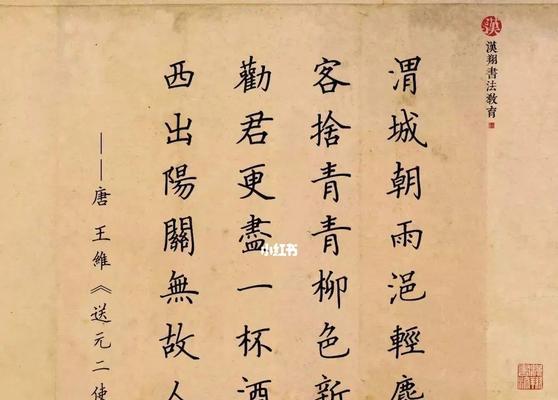 漢
漢翔書法教育
渭城朝雨浥輕塵
客捨青青柳色新
勸君更盡一杯酒
西出陽關無故人
——唐 王維《送元二使
小红书